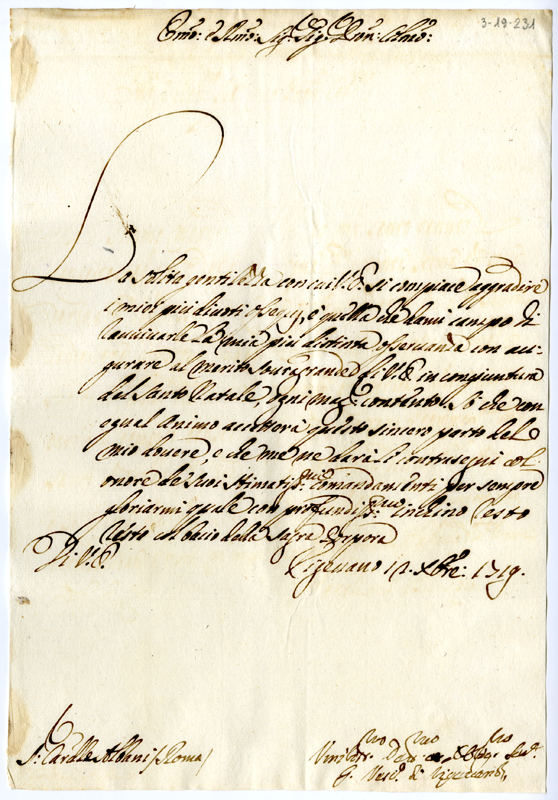 3-19-231
Em̃o: e Rmõ: Sig:re Sig:re Pron: Colmõ:
La solita gentilezza con cui V.E. si compiace aggradire
i miei più divoti ossequij, è quella che dami campo di
ravvivarle la mia più distinta osservanza con au-
gurare al merito sovragrande di V.E. in congiuntura
del Santo Natale, ogni mag:r contento. Sò che con
egual animo accetterà questo sincero parto del
mio dovere, e che me ne darà li contrasegni col-
onore de Suoi stimatiss:mi comandamenti per sempre
gloriarmi quale con profundiss:mo inchino resto
resto col bacio della Sagra Porpora
Di V.E.
Vigevano 12. Xbre: 1719.
S:r Card:le Albani /Roma/
Umiliss:mo Dev:mo Obbg:mo Ser:e
G. Vesc:o di Vigevano